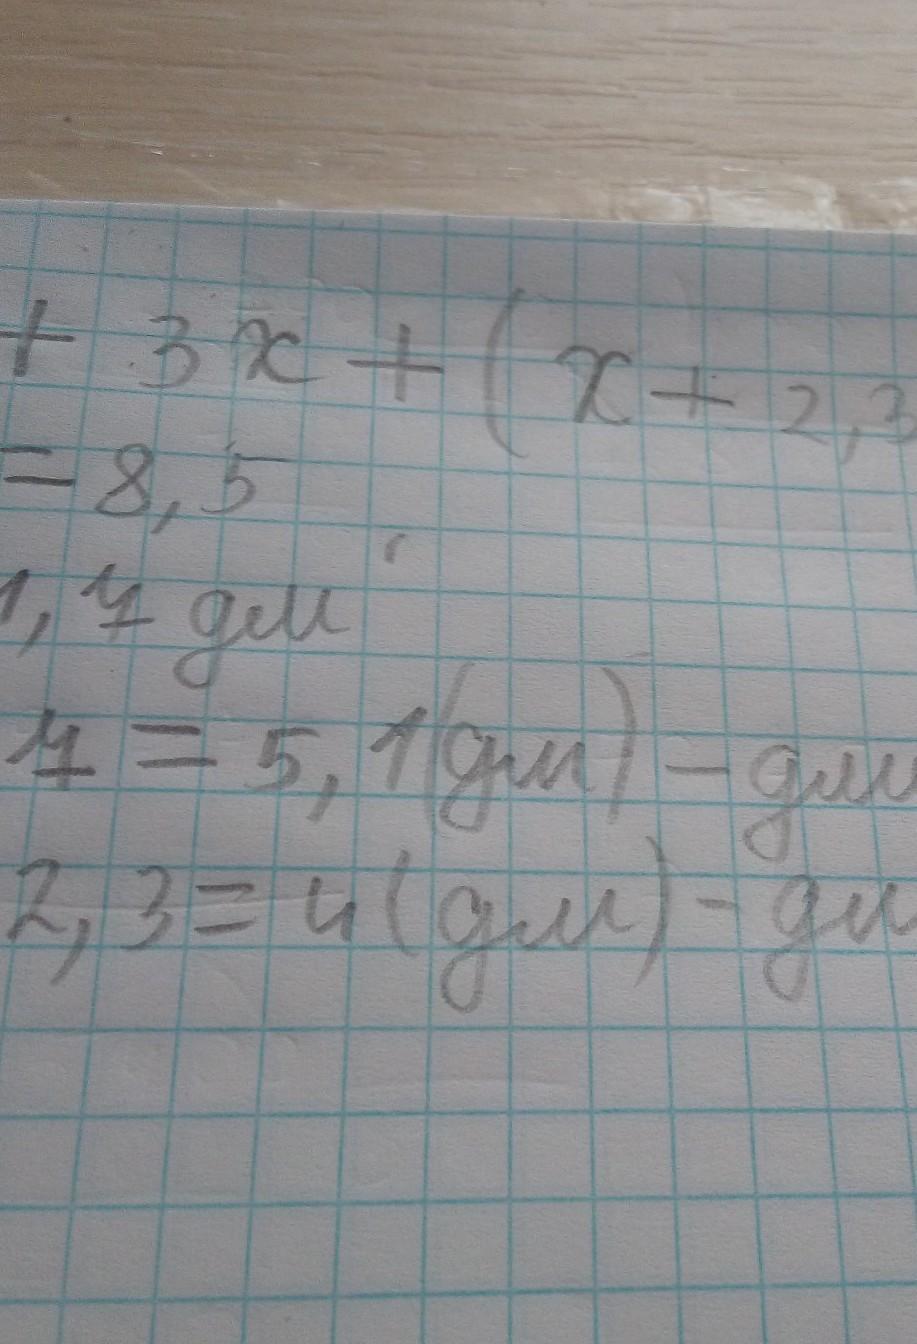 + 3x + (x + 2,3
= 8,5
1,7 дм
7 = 5,1(дм) - дли
2,3 = 4(дм) - дл